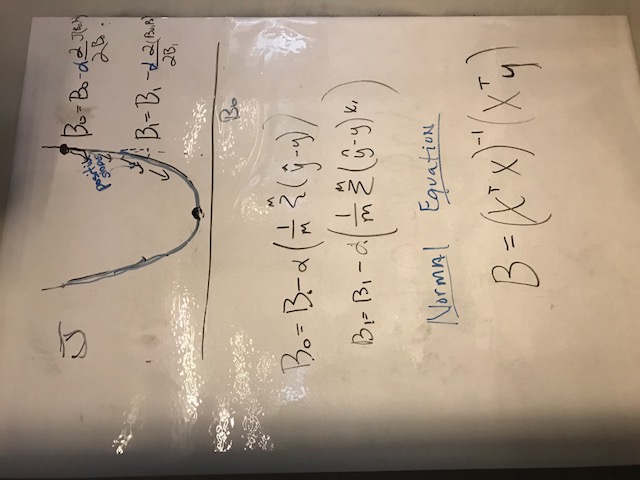 J
positive
slope
B₀ = B₀ - α ∂/∂B₀ J(B₀,
B₁ = B₁ - α ∂/∂B₁ (B₀,B₁
B₀
B₀ = B₀ - α (1/m Σᵐ (ŷ - y))
B₁ = B₁ - α (1/m Σᵐ (ŷ - y) x₁)
Normal Equation
B = (XᵀX)⁻¹ (Xᵀy)